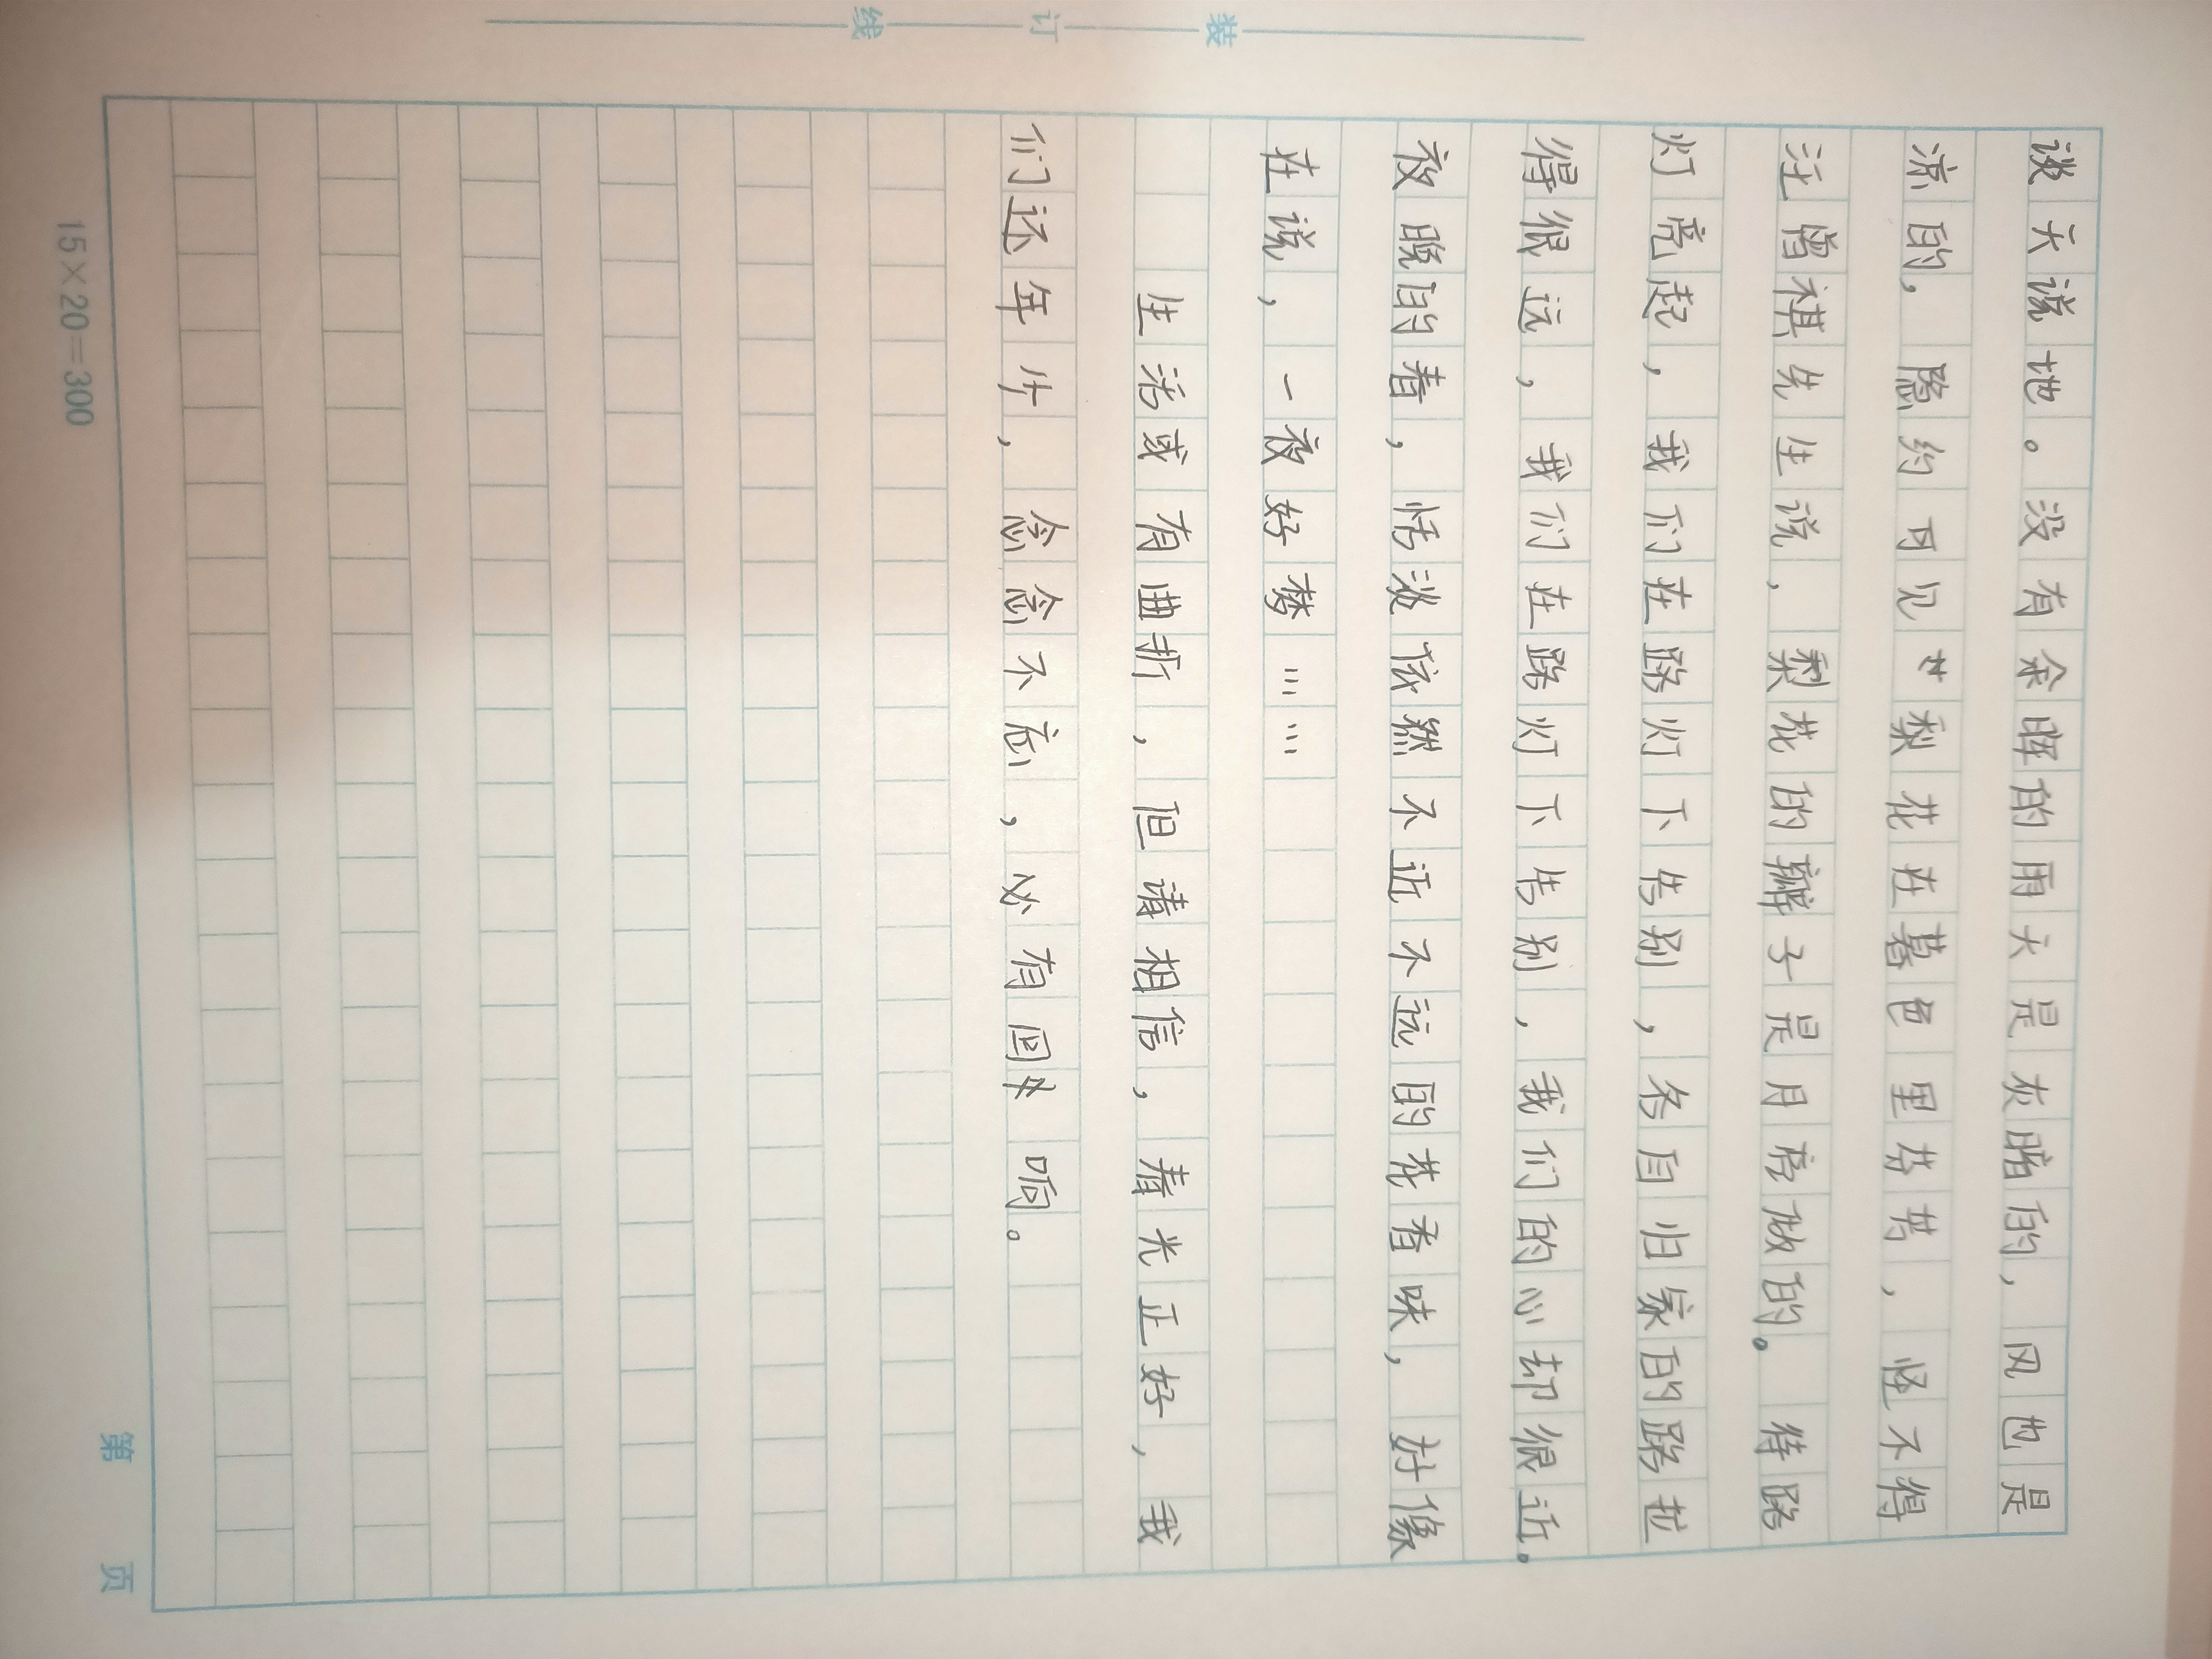 装订线
谈天说地。没有余晖的雨天是灰暗的，风也是
凉的，隐约可见梨花在暮色里芬芳，怪不得
汪曾祺先生说，梨花的瓣子是月亮做的。待路
灯亮起，我们在路灯下告别，各自归家的路拉
得很远，我们在路灯下告别，我们的心却很近。
夜晚的春，恬淡依然不近不远的花香味，好像
在说，一夜好梦……
生活或有曲折，但请相信，春光正好，我
们还年少，念念不忘，必有回响。
15×20=300
第 页